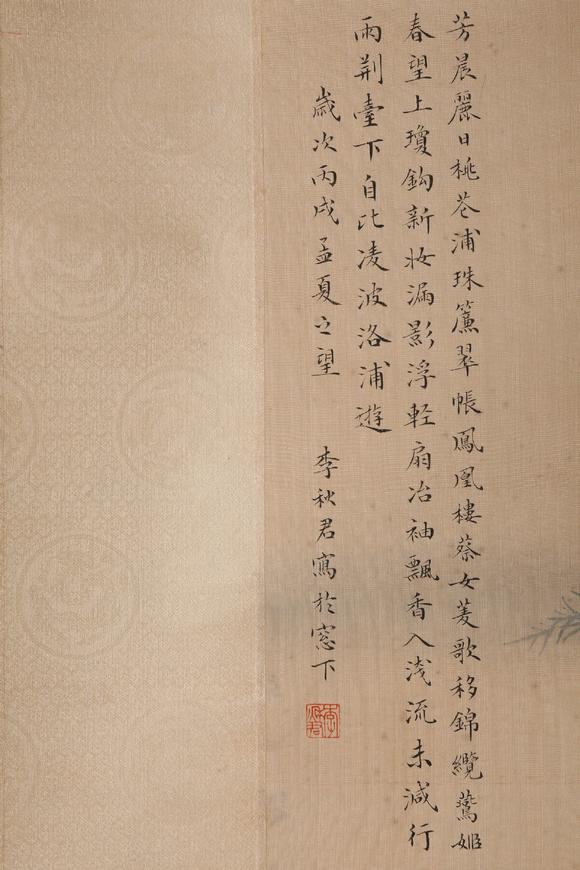 芳晨麗日桃花浦珠簾翠帳鳳凰樓蔡女菱歌移錦纜鷰姬
春望上瓊鈎新妝漏影浮輕扇冶袖飄香入淺流未減行
雨荆臺下自比凌波洛浦遊
歲次丙戌孟夏之望 李秋君寫於窓下